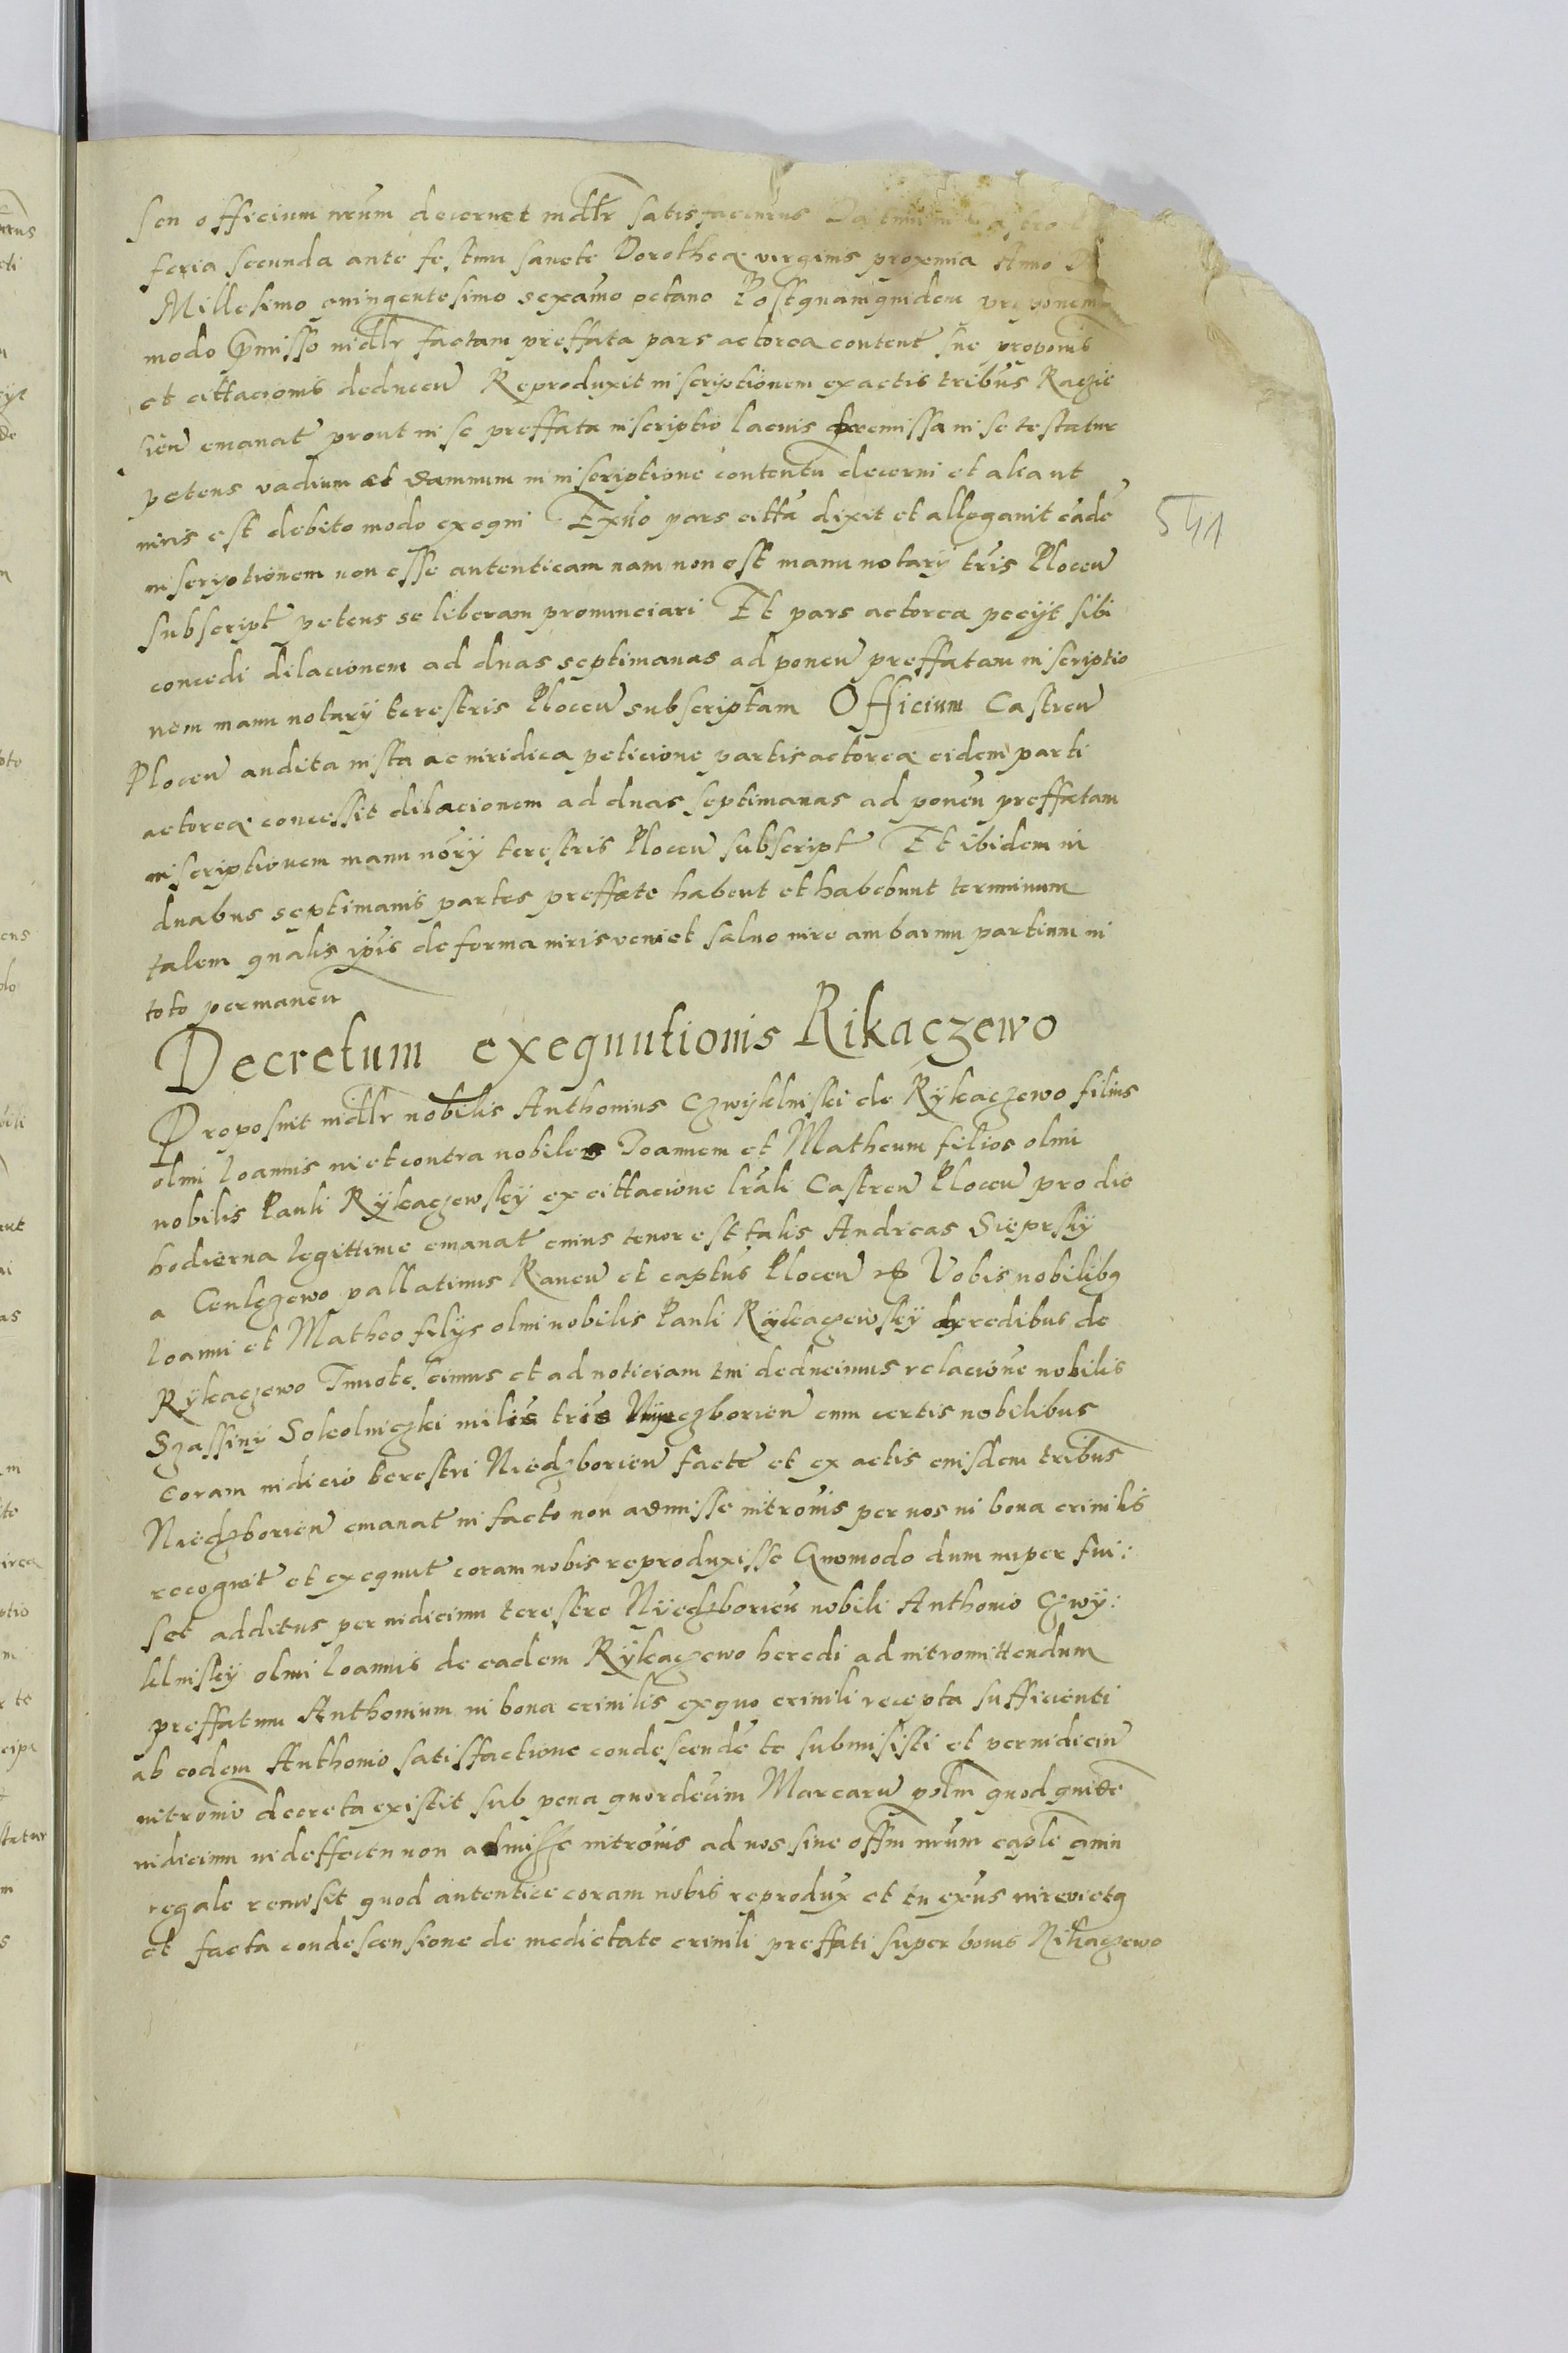 seu officium nrum decernet indllr satisfacturus
feria secunda ante festum sancte Dorothea virginis proxima Anno
Millesimo quingentesimo sexamo octauo Postquamquidem
modo pmisso indllr factam preffata pars actorea content sue proponis
et cittacionis deducen Reproduxit inscriptionem ex actis tribus Racziε
sien emanat prout in se preffata inscriptio lacius premissa in se testatur
petens vadium et damnum in inscriptione contentu decerni et alia ut
iuris est debito modo exequi Exuo pars citta dixit et allegauit eade
inscriptionem non esse autenticam nam non est manu notarÿ tris Plocen
subscript petens se liberam pronunciari Et pars actorea peciit sibi
concedi dilacionem ad duas septimanas ad ponen preffatam inscriptio
nem manu notarÿ terestris Plocen subscriptam Officium Castren
Plocen audita iusta ac iuridica peticione partis actorea eidem parti
actorea concessit dilacionem ad duas septimanas ad ponen preffatam
inscriptionem manu norÿ terestris Plocen subscript Et ibidem in
duabus septimanis partes preffate habent et habebunt terminum
talem qualis ipis de forma iuris veniet saluo iure ambarum partium in
toto permanen
Decretum exequutionis Rikaczewo
Proposuit indllr nobilis Anthonius Czwiklinski de Rÿkaczewo filius
olmi Ioannis in et contra nobiles Joannem et Matheum filios olmi
nobilis Pauli Rÿkaczewskÿ ex cittacione lrali Castren Plocen pro die
hodierna legittime emanat cuius tenor est talis Andreas Sieprskÿ
a Ceulczewo pallatinus Rauen et captus Plocen etc Vobis nobilibq
Ioanni et Matheo filÿs olmi nobilis Pauli Rÿkaczewskÿ heredibus de
Rÿkaczewo Innotecimus et ad noticiam tni deducimus relacione nobilis
Szassinÿ Sokolniczki milis tris Nÿeczborien cum certis nobilibus
coram iudicio terestri Niedzborien facte et ex actis euisdem tribus
Niedzborien emanat in facto non admisse intromis per uos in bona crinilis
recognit et exequut coram nobis reproduxisse Quomodo dum nuper fui:
set additus per iudicium terestre Nÿedzborien nobili Anthonio Czwÿ:
klinskÿ olmi Ioannis de eadem Rÿkaczewo heredi ad intromittendum
preffatum Anthonium in bona crinilis exquo crinili recepta sufficienti
ab eodem Anthonio satisfactione condescende te submisisti et per iudiciu
intromio decreta existit sub pena quordecim Marcaru polm quod quidde
iudicium indeffectu non admisse intromis ad nos siue offm nrum caple qmin
regale remisit quod autentice coram nobis repродux et tu exus iureuictq
et facta condescensione de medietate crinili preffati super bonis Rikaczewo
541